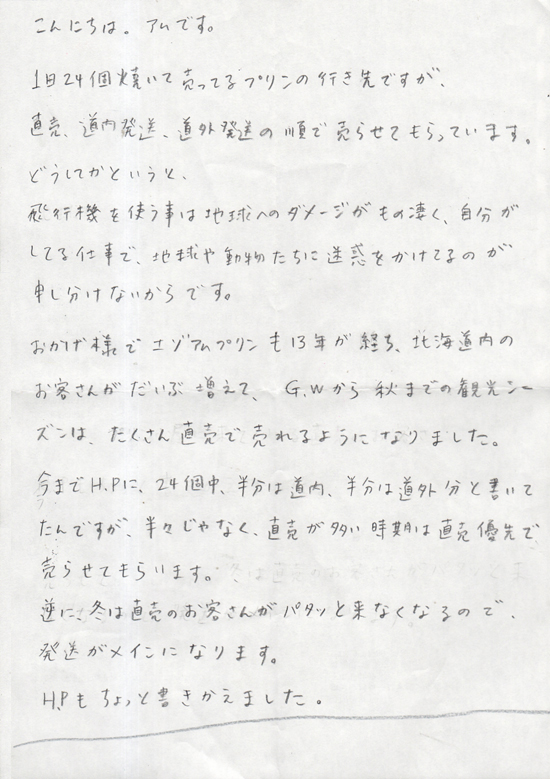 こんにちは。アムです。
1日24個焼いて売ってるプリンの行き先ですが、
直売、道内発送、道外発送の順で売らせてもらっています。
どうしてかというと、
飛行機を使う事は地球へのダメージがもの凄く、自分が
してる仕事で、地球や動物たちに迷惑をかけてるのが
申し分けないからです。
おかげ様でエゾアムプリンも13年が経ち、北海道内の
お客さんがだいぶ増えて、G.Wから秋までの観光シー
ズンは、たくさん直売で売れるようになりました。
今までH.Pに、24個中、半分は道内、半分は道外分と書いて
たんですが、半々じゃなく、直売が多い時期は直売優先で
売らせてもらいます。
逆に、冬は直売のお客さんがパタッと来なくなるので、
発送がメインになります。
H.Pもちょっと書きかえました。